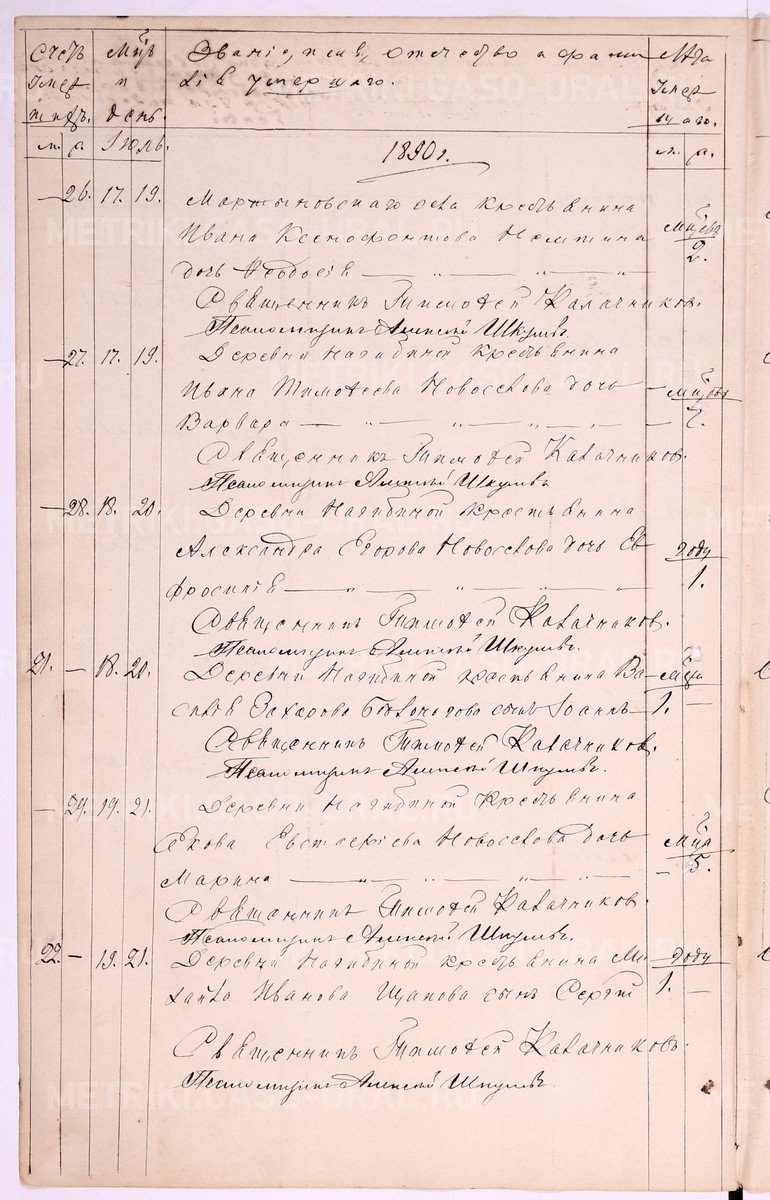 Счетъ Мцъ Званіе, имя, отечество и фами Лѣта
умер и лія умершаго. умер
шихъ. день. шаго.
м. ж. Іюль. 1890 г. м. ж.
— 26. 17. 19. Мартыновскаго села крестьянина
Ивана Ксенофонтова дочь Ѳеодосія — „ — „ — „ 2.
Священникъ Тимофей Калачниковъ.
Псаломщикъ Алексій Шкулевъ
— 27. 17. 19. Деревни Нагибиной крестьянина
Ивана Тимофеева Новоселова дочь —
Варвара — „ — „ — „ — „ — 7.
Священникъ Тимофей Калачниковъ.
Псаломщикъ Алексій Шкулевъ
— 28. 18. 20. Деревни Нагибиной крестьянина
Александра Егорова Новоселова дочь Ев году
фросинія — „ — „ — „ 1.
Священникъ Тимофей Калачниковъ.
Псаломщикъ Алексій Шкулевъ.
21. — 18. 20. Деревни Нагибиной крестьянина Ва
силія Захарова сынъ Іоаннъ — 1. —
Священникъ Тимофей Калачниковъ.
Псаломщикъ Алексій Шкулевъ.
— 29. 19. 21. Деревни Нагибиной Крестьянина
Якова Евстафіева Новоселова дочь Мца
Марина — „ — „ — „ — 5.
Священникъ Тимофей Калачниковъ.
Псаломщикъ Алексій Шкулевъ.
22. — 19. 21. Деревни Нагибиной крестьянина Ми году
хаила Иванова Щапова сынъ Сергій 1. —
Священникъ Тимофей Калачниковъ.
Псаломщикъ Алексій Шкулевъ.